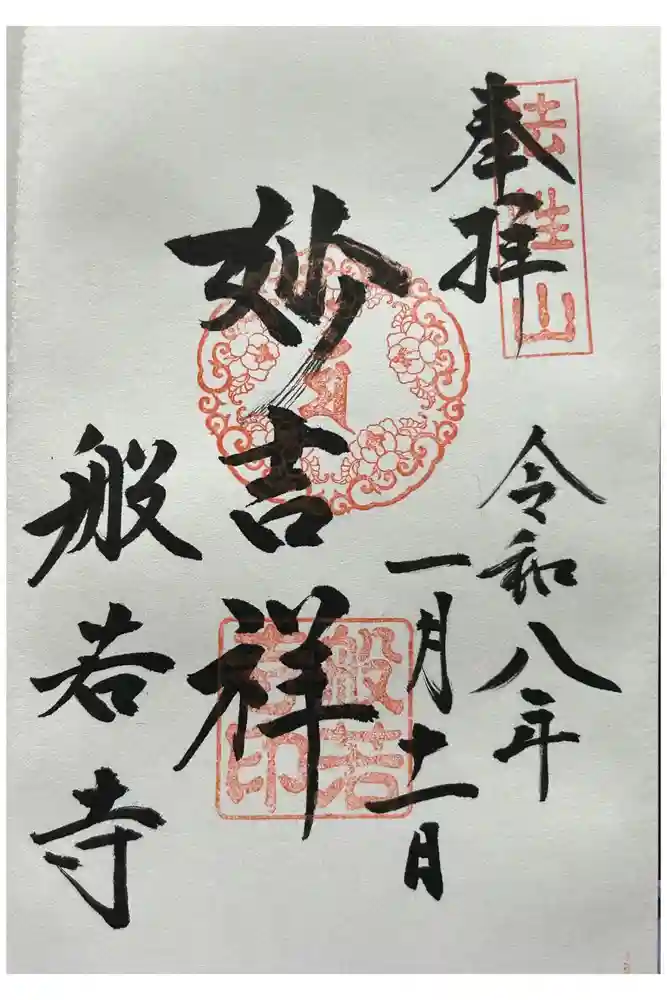 奉拝
法性山
令和八年
一月十一日
妙吉祥
般若
寺印
般若寺